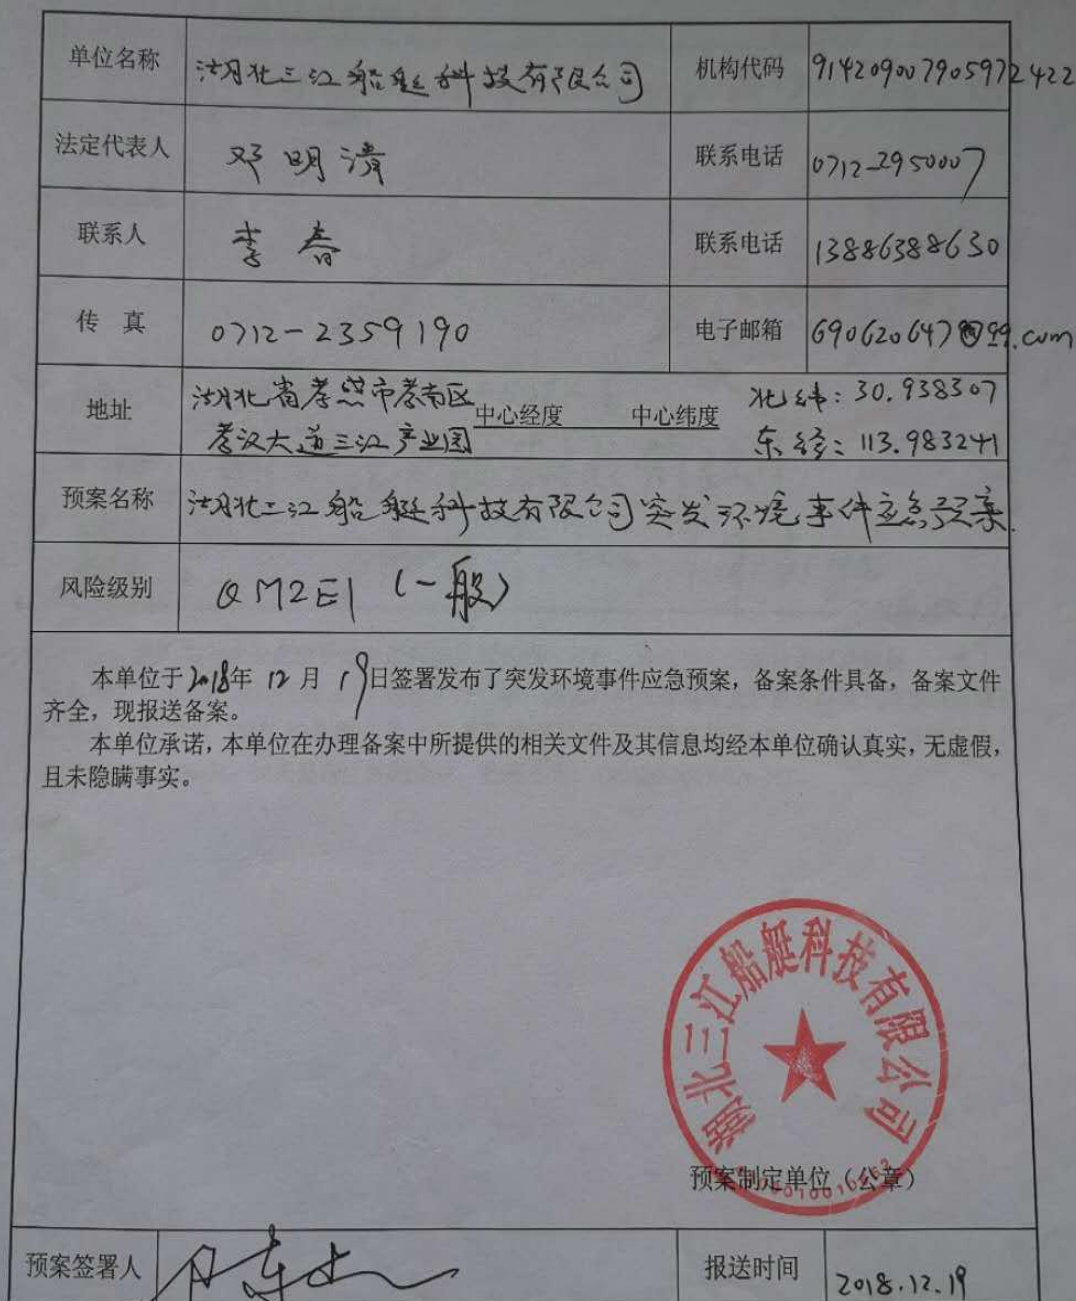 单位名称 湖北三江船艇科技有限公司 机构代码 914209007905972422
法定代表人 邓明清 联系电话 0712-2950007
联系人 李春 联系电话 13886388630
传 真 0712-2359190 电子邮箱 690620647@qq.com
地址 湖北省孝感市孝南区 中心经度 中心纬度 北纬：30.938307
孝汉大道三江产业园 东经：113.983241
预案名称 湖北三江船艇科技有限公司突发环境事件应急预案.
风险级别 QM2E1 (一般)
本单位于2018年 12 月 19日签署发布了突发环境事件应急预案，备案条件具备，备案文件
齐全，现报送备案。
本单位承诺，本单位在办理备案中所提供的相关文件及其信息均经本单位确认真实，无虚假，
且未隐瞒事实。
湖北三江船艇科技有限公司
预案制定单位（公章）
预案签署人 报送时间 2018.12.19